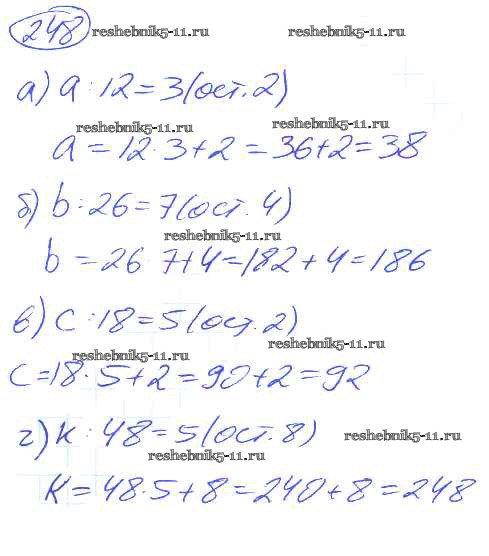 248 reshebnik5-11.ru reshebnik5-11.ru
а) a : 12 = 3 (ост. 2)
reshebnik5-11.ru reshebnik5-11.ru
a = 12 · 3 + 2 = 36 + 2 = 38
б) b : 26 = 7 (ост. 4)
reshebnik5-11.ru
b = 26 7 + 4 = 182 + 4 = 186
в) c : 18 = 5 (ост. 2)
reshebnik5-11.ru reshebnik5-11.ru
c = 18 · 5 + 2 = 90 + 2 = 92
г) k : 48 = 5 (ост. 8) reshebnik5-11.ru
reshebnik5-11.ru
k = 48 · 5 + 8 = 240 + 8 = 248